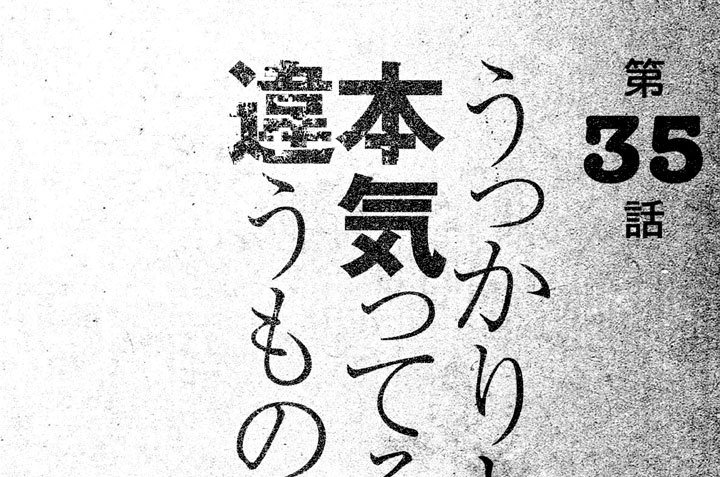 第35話
うっかり
本気って
違うもの